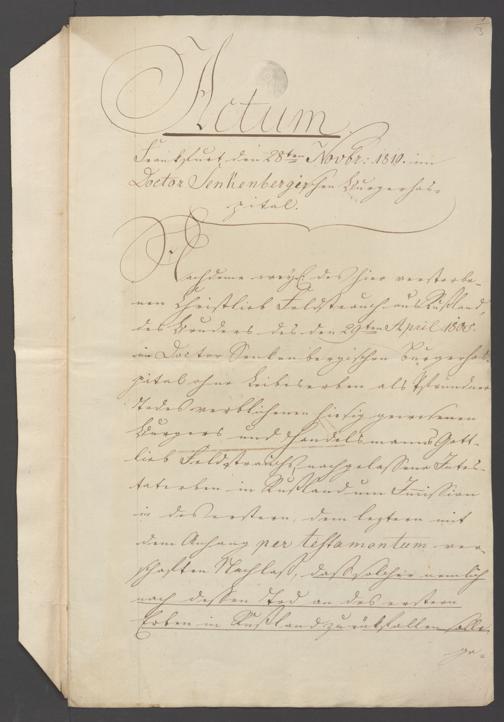 Actum
Frankfurt, den 28ten Novbr: 1810. im
Doctor Senkenbergischen Burgerhos-
pital.
Nachdeme des hier verstorbe-
nen Christlieb Feldstrauch aus Rußland,
des Bruders des den 29ten April 1808
im Doctor Senkenbergischen Burgerhos-
pital ohne Leibeserben als Pfründner
Todes verblichenen hiesig gewesenen
Burgers und Handelsmanns Gott-
lieb Feldstrauchs, nachgelassene Intes-
taterben in Rußland um Immission
in des erstern, dem leztern mit
dem Anhang per testamentum ver-
schafften Nachlaß, daß solcher nemlich
nach dessen Tod an des erstern
Erben in Rußland zurükfallen solle,
ge-